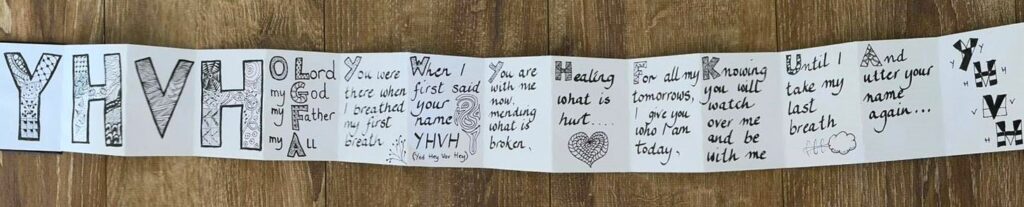 YHVH
O Lord
my God
my Father
my All
You were
there when
I breathed
my first
breath
When I
first said
your
name
YHVH
(Yod Hey Vav Hey)
You are
with me
now.
mending
what is
broken.
Healing
what is
hurt....
For all my
tomorrows,
I give you
who I am
today.
Knowing
you will
watch
over me
and be
with me
Until I
take my
last
breath
And
utter your
name
again...
Y
Y
Y
H
H
V
V
H
H